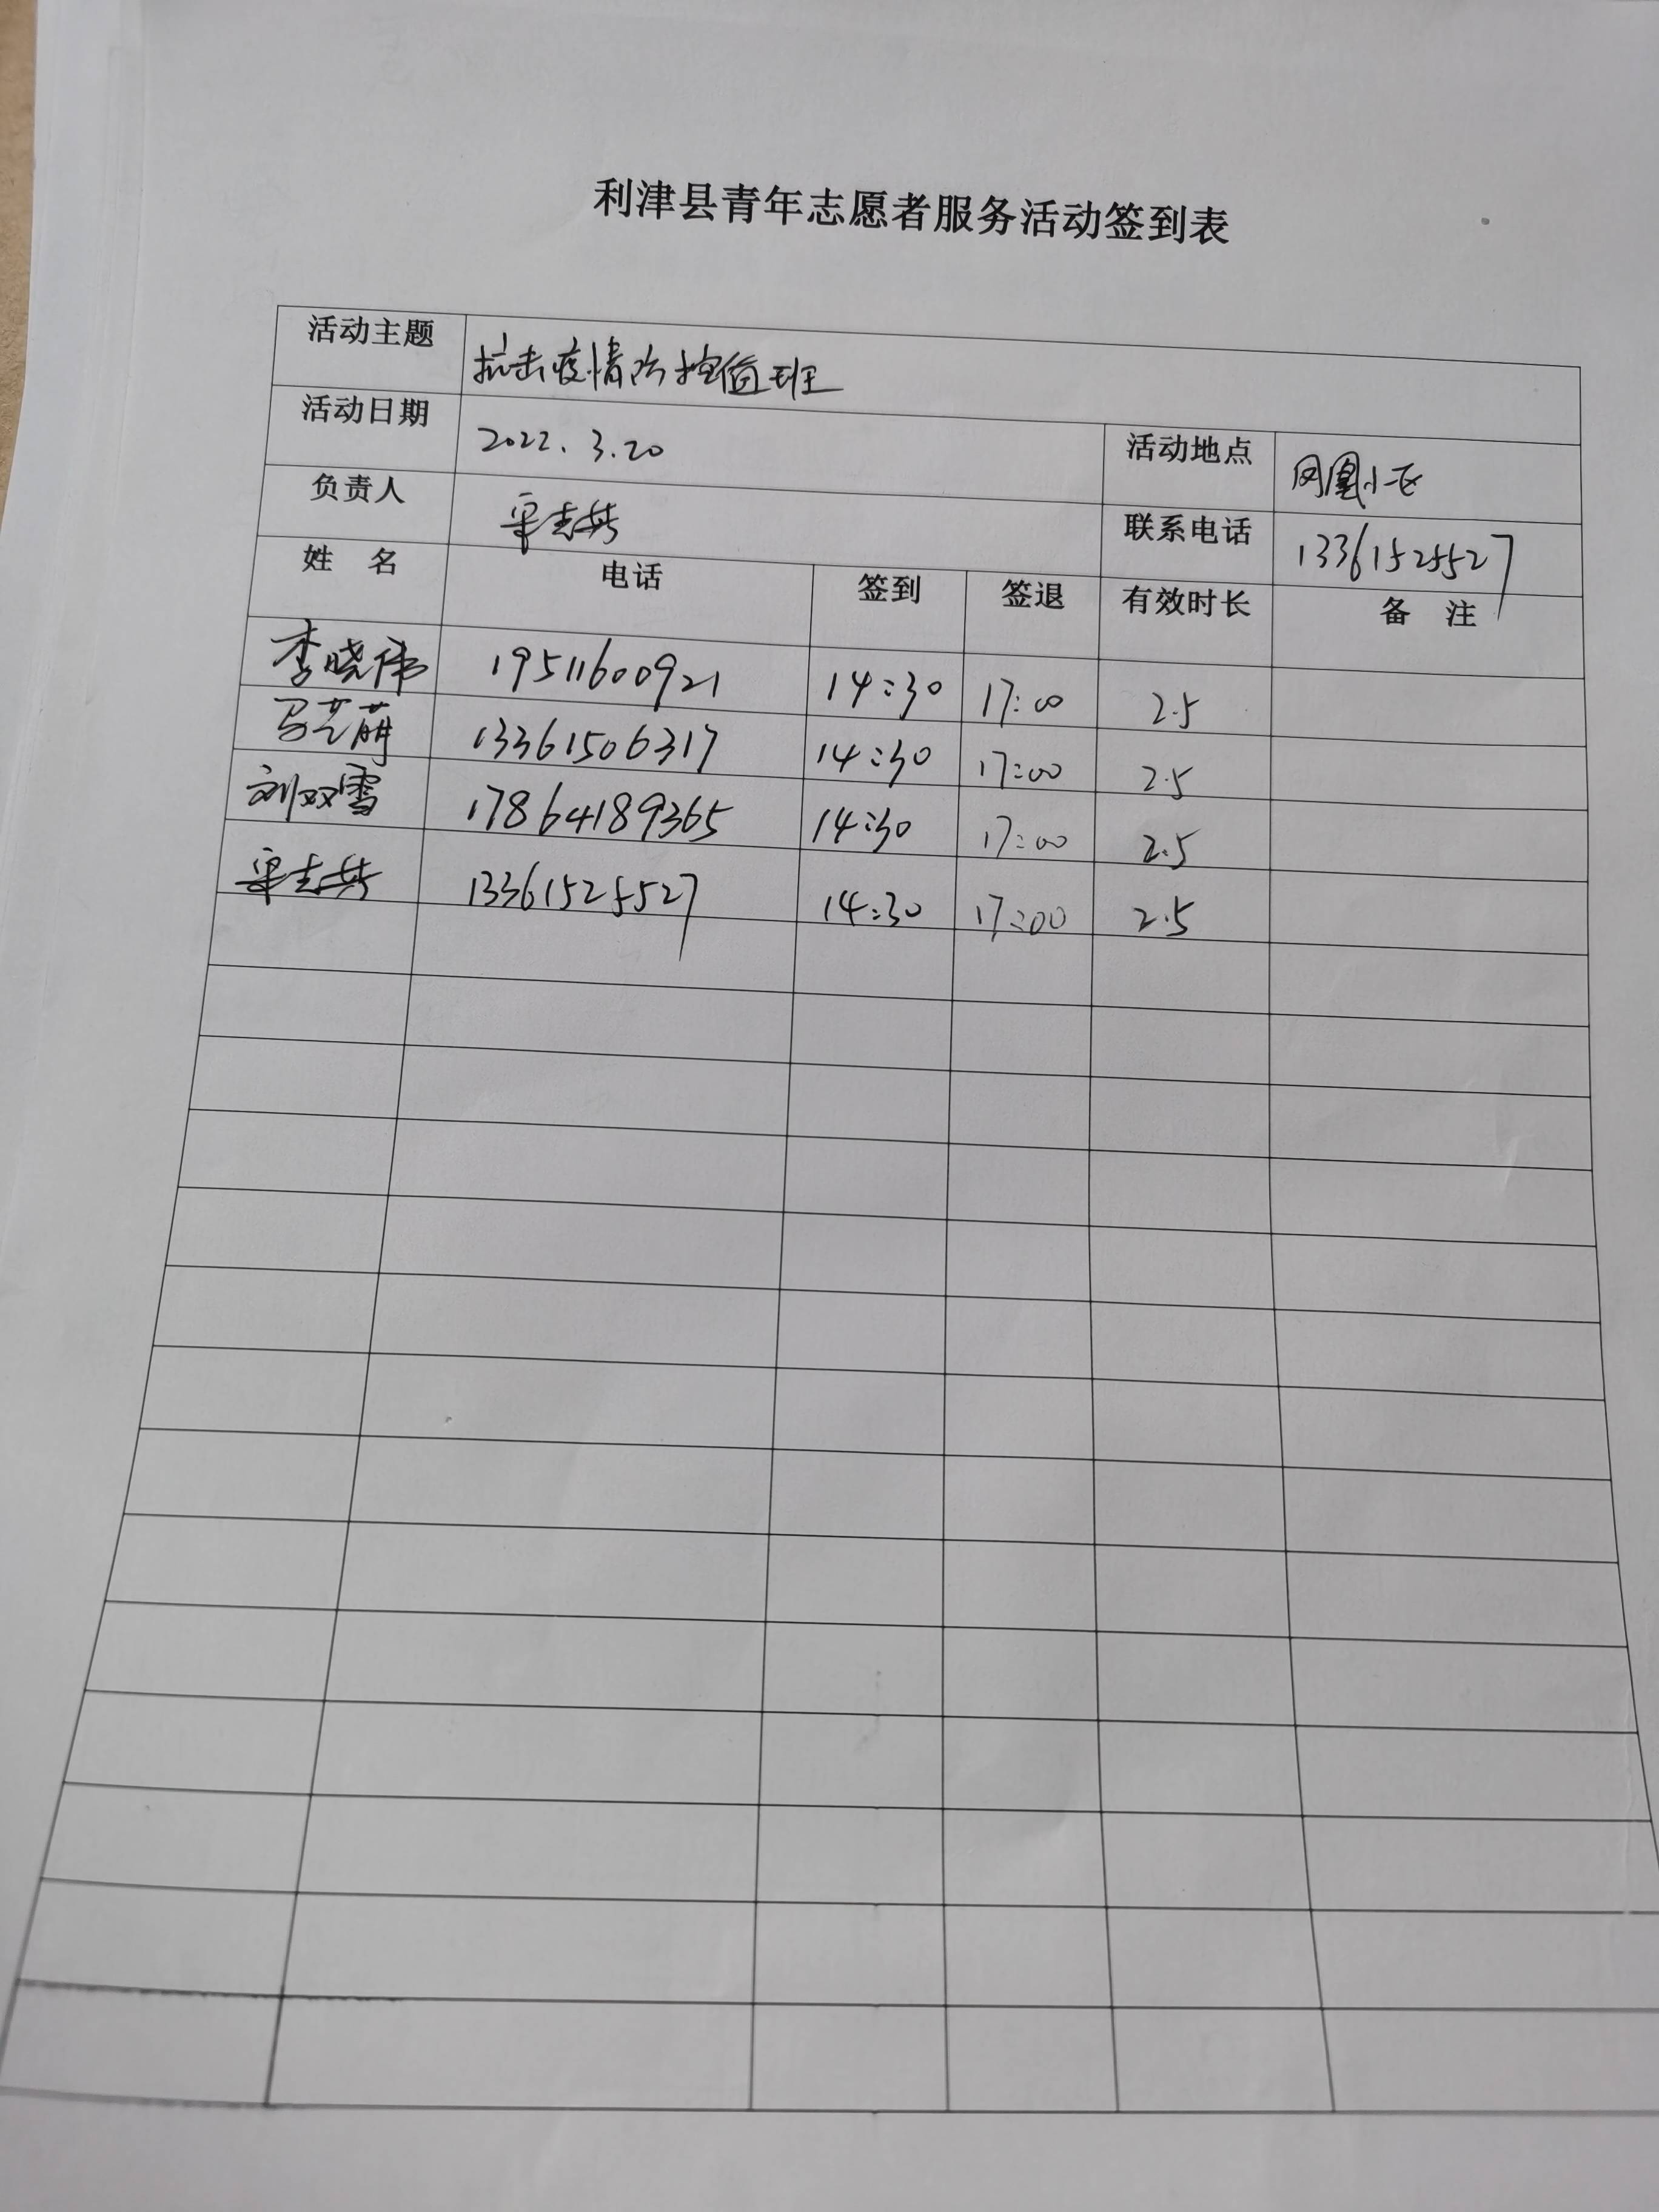 利津县青年志愿者服务活动签到表
活动主题 抗击疫情防控值班
活动日期 2022.3.20 活动地点 凤凰小区
负责人 联系电话 13361525527
姓 名 电话 签到 签退 有效时长 备 注
李晓伟 19511600921 14:30 17:00 2.5
马芝萌 13361506317 14:30 17:00 2.5
刘双雪 17864189365 14:30 17:00 2.5
13361525527 14:30 17:00 2.5